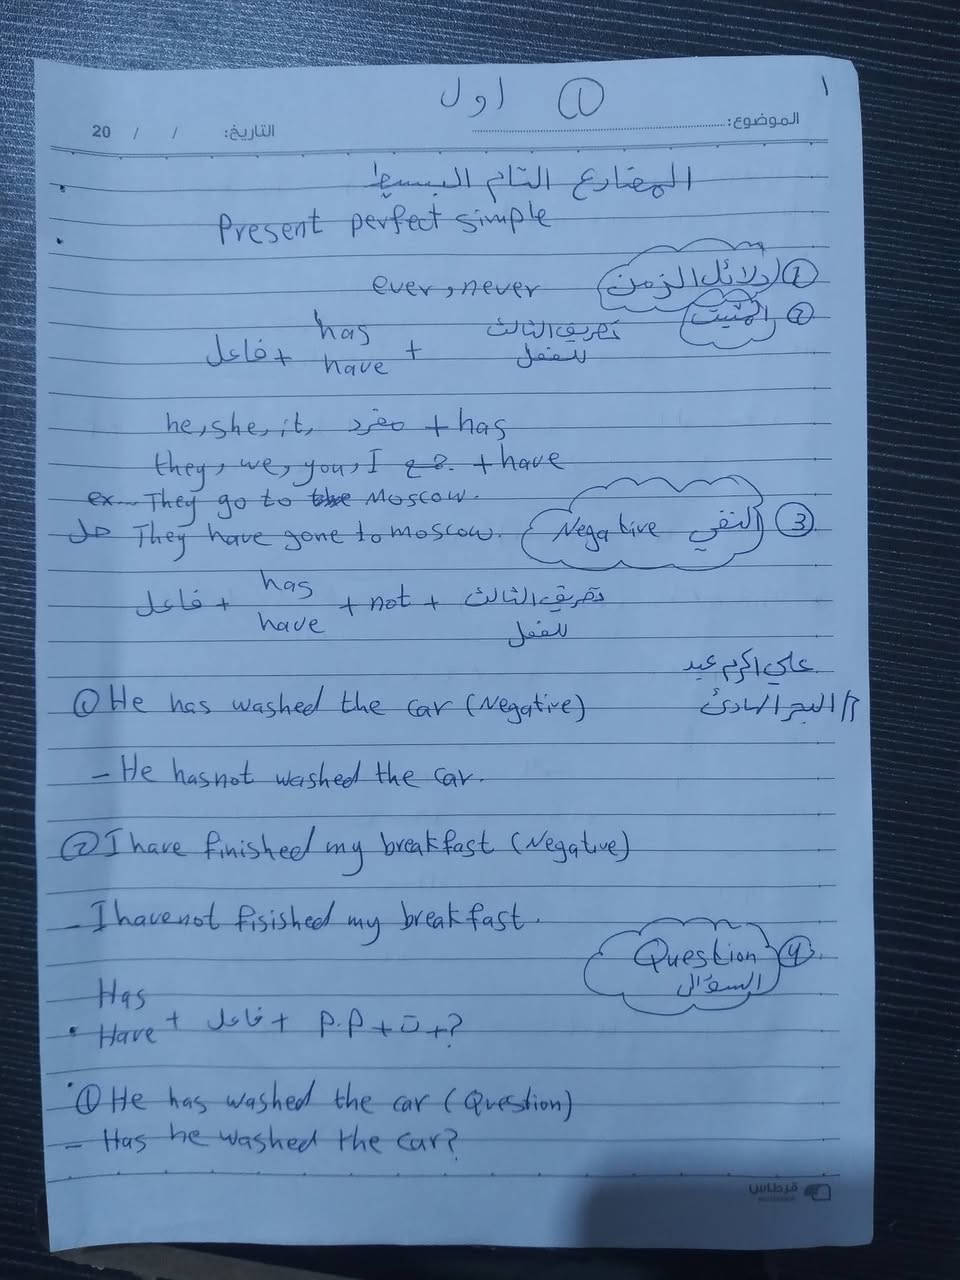 ١
اول ①
الموضوع:
التاريخ: / / 20
المضارع التام البسيط
Present perfect simple
① دلائل الزمن ever, never
② المثبت
فاعل + has / have + تصريف الثالث للفعل
he, she, it, مفرد + has
they, we, you, I جمع + have
ex... They go to the Moscow.
حل They have gone to moscow.
③ النفي Negative
فاعل + has / have + not + تصريف الثالث للفعل
علي اكرم عبد
م/ البحر الهادئ
① He has washed the car (Negative)
- He has not washed the car.
② I have finished my breakfast (Negative)
- I have not fisished my breakfast.
④ Question السؤال
Has / Have + فاعل + p.p + ت + ?
① He has washed the car (Question)
- Has he washed the car?
قرطاس